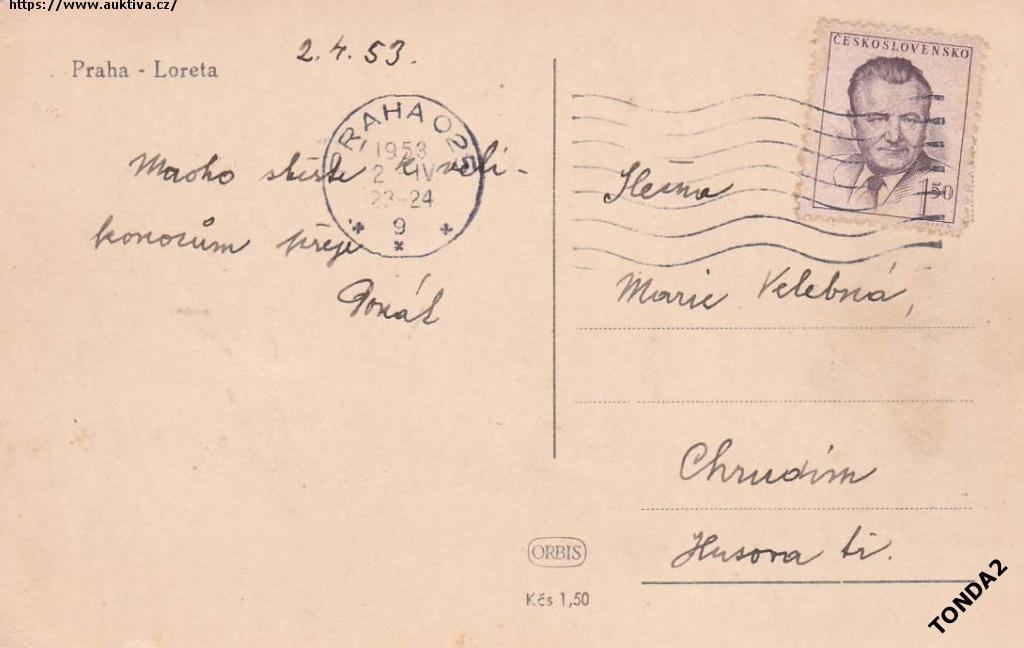 https://www.auktiva.cz/
Praha - Loreta
2.4.53.
ČESKOSLOVENSKO
1,50
PRAHA 025
1953
2 IV
23-24
9
Mnoho štěstí k veli-
konocům přeje
Donát
Slečna
Marie Velebná,
Chrudim
Husova tř.
ORBIS
Kčs 1,50
TONDA2